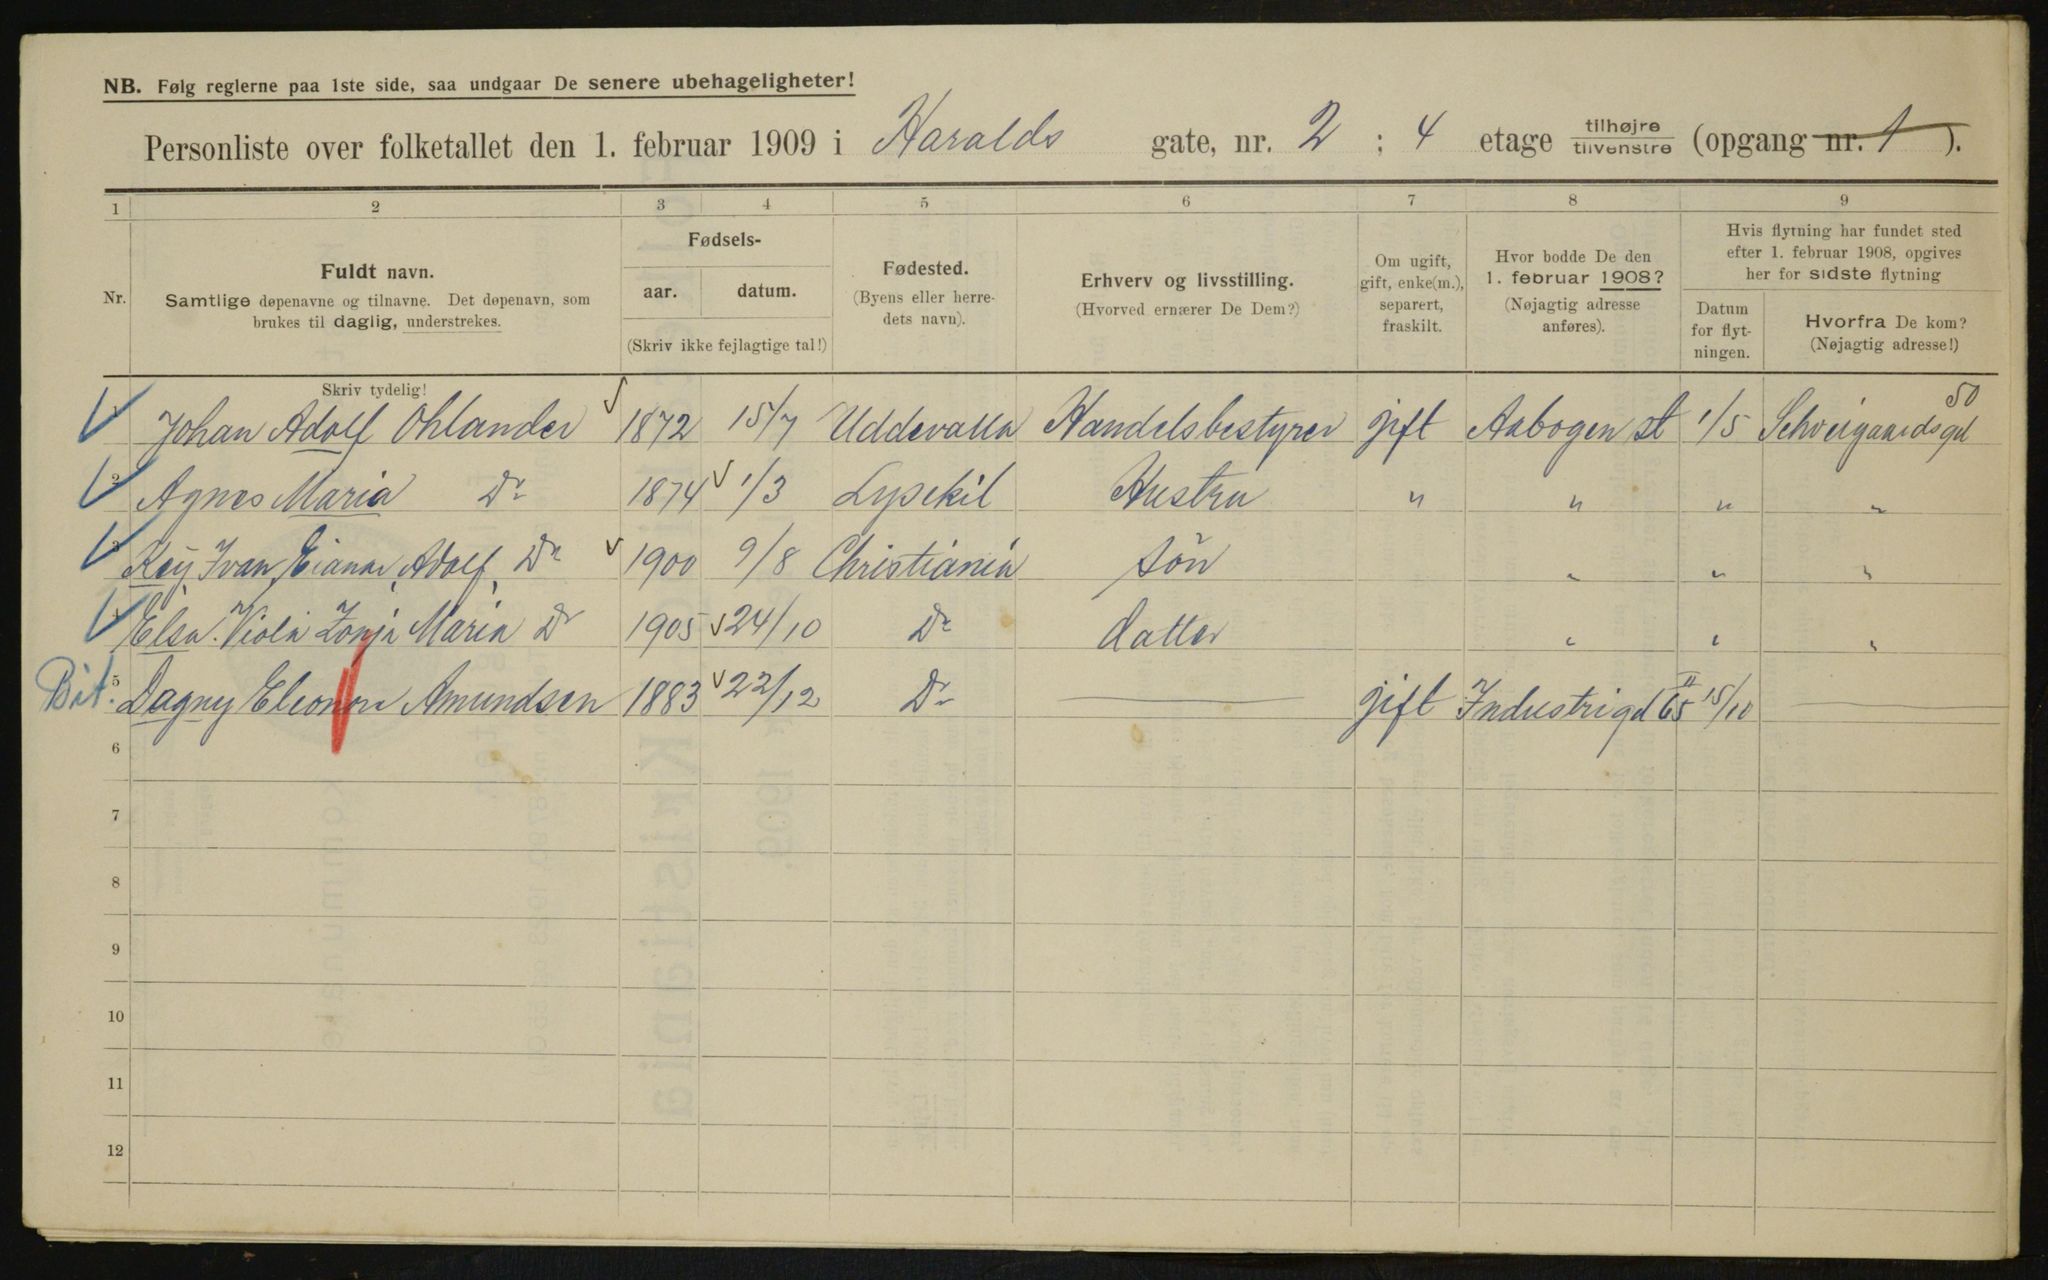 NB. Følg reglerne paa 1ste side, saa undgaar De senere ubehageligheter!
Personliste over folketallet den 1. februar 1909 i Haralds gate, nr. 2 ; 4 etage tilhøjre tilvenstre (opgang nr. 1 ).
1 2 3 4 5 6 7 8 9
Nr.
Fuldt navn.
Samtlige døpenavne og tilnavne. Det døpenavn, som
brukes til daglig, understrekes.
Skriv tydelig!
Fødsels-
aar. datum.
(Skriv ikke fejlagtige tal!)
Fødested.
(Byens eller herre-
dets navn).
Erhverv og livsstilling.
(Hvorved ernærer De Dem?)
Om ugift,
gift, enke(m.),
separert,
fraskilt.
Hvor bodde De den
1. februar 1908?
(Nøjagtig adresse
anføres).
Hvis flytning har fundet sted
efter 1. februar 1908, opgives
her for sidste flytning
Datum
for flyt-
ningen.
Hvorfra De kom?
(Nøjagtig adresse!)
1 Johan Adolf Ohlander 1872 15/7 Uddevalla Handelsbestyrer gift Aabogen st 1/5 Schveigaardsgd 50
2 Agnes Maria Do 1874 1/3 Lysekil Hustru " " " "
3 Key Ivan Einar Adolf Do 1900 9/8 Christiania Sön " " "
4 Elsa Viola Zonja Maria Do 1905 24/10 Do datter " " "
Bit. 5 Dagny Eleonore Amundsen 1883 22/12 Do — gift Industrigd 65 II 15/10 —
6
7
8
9
10
11
12